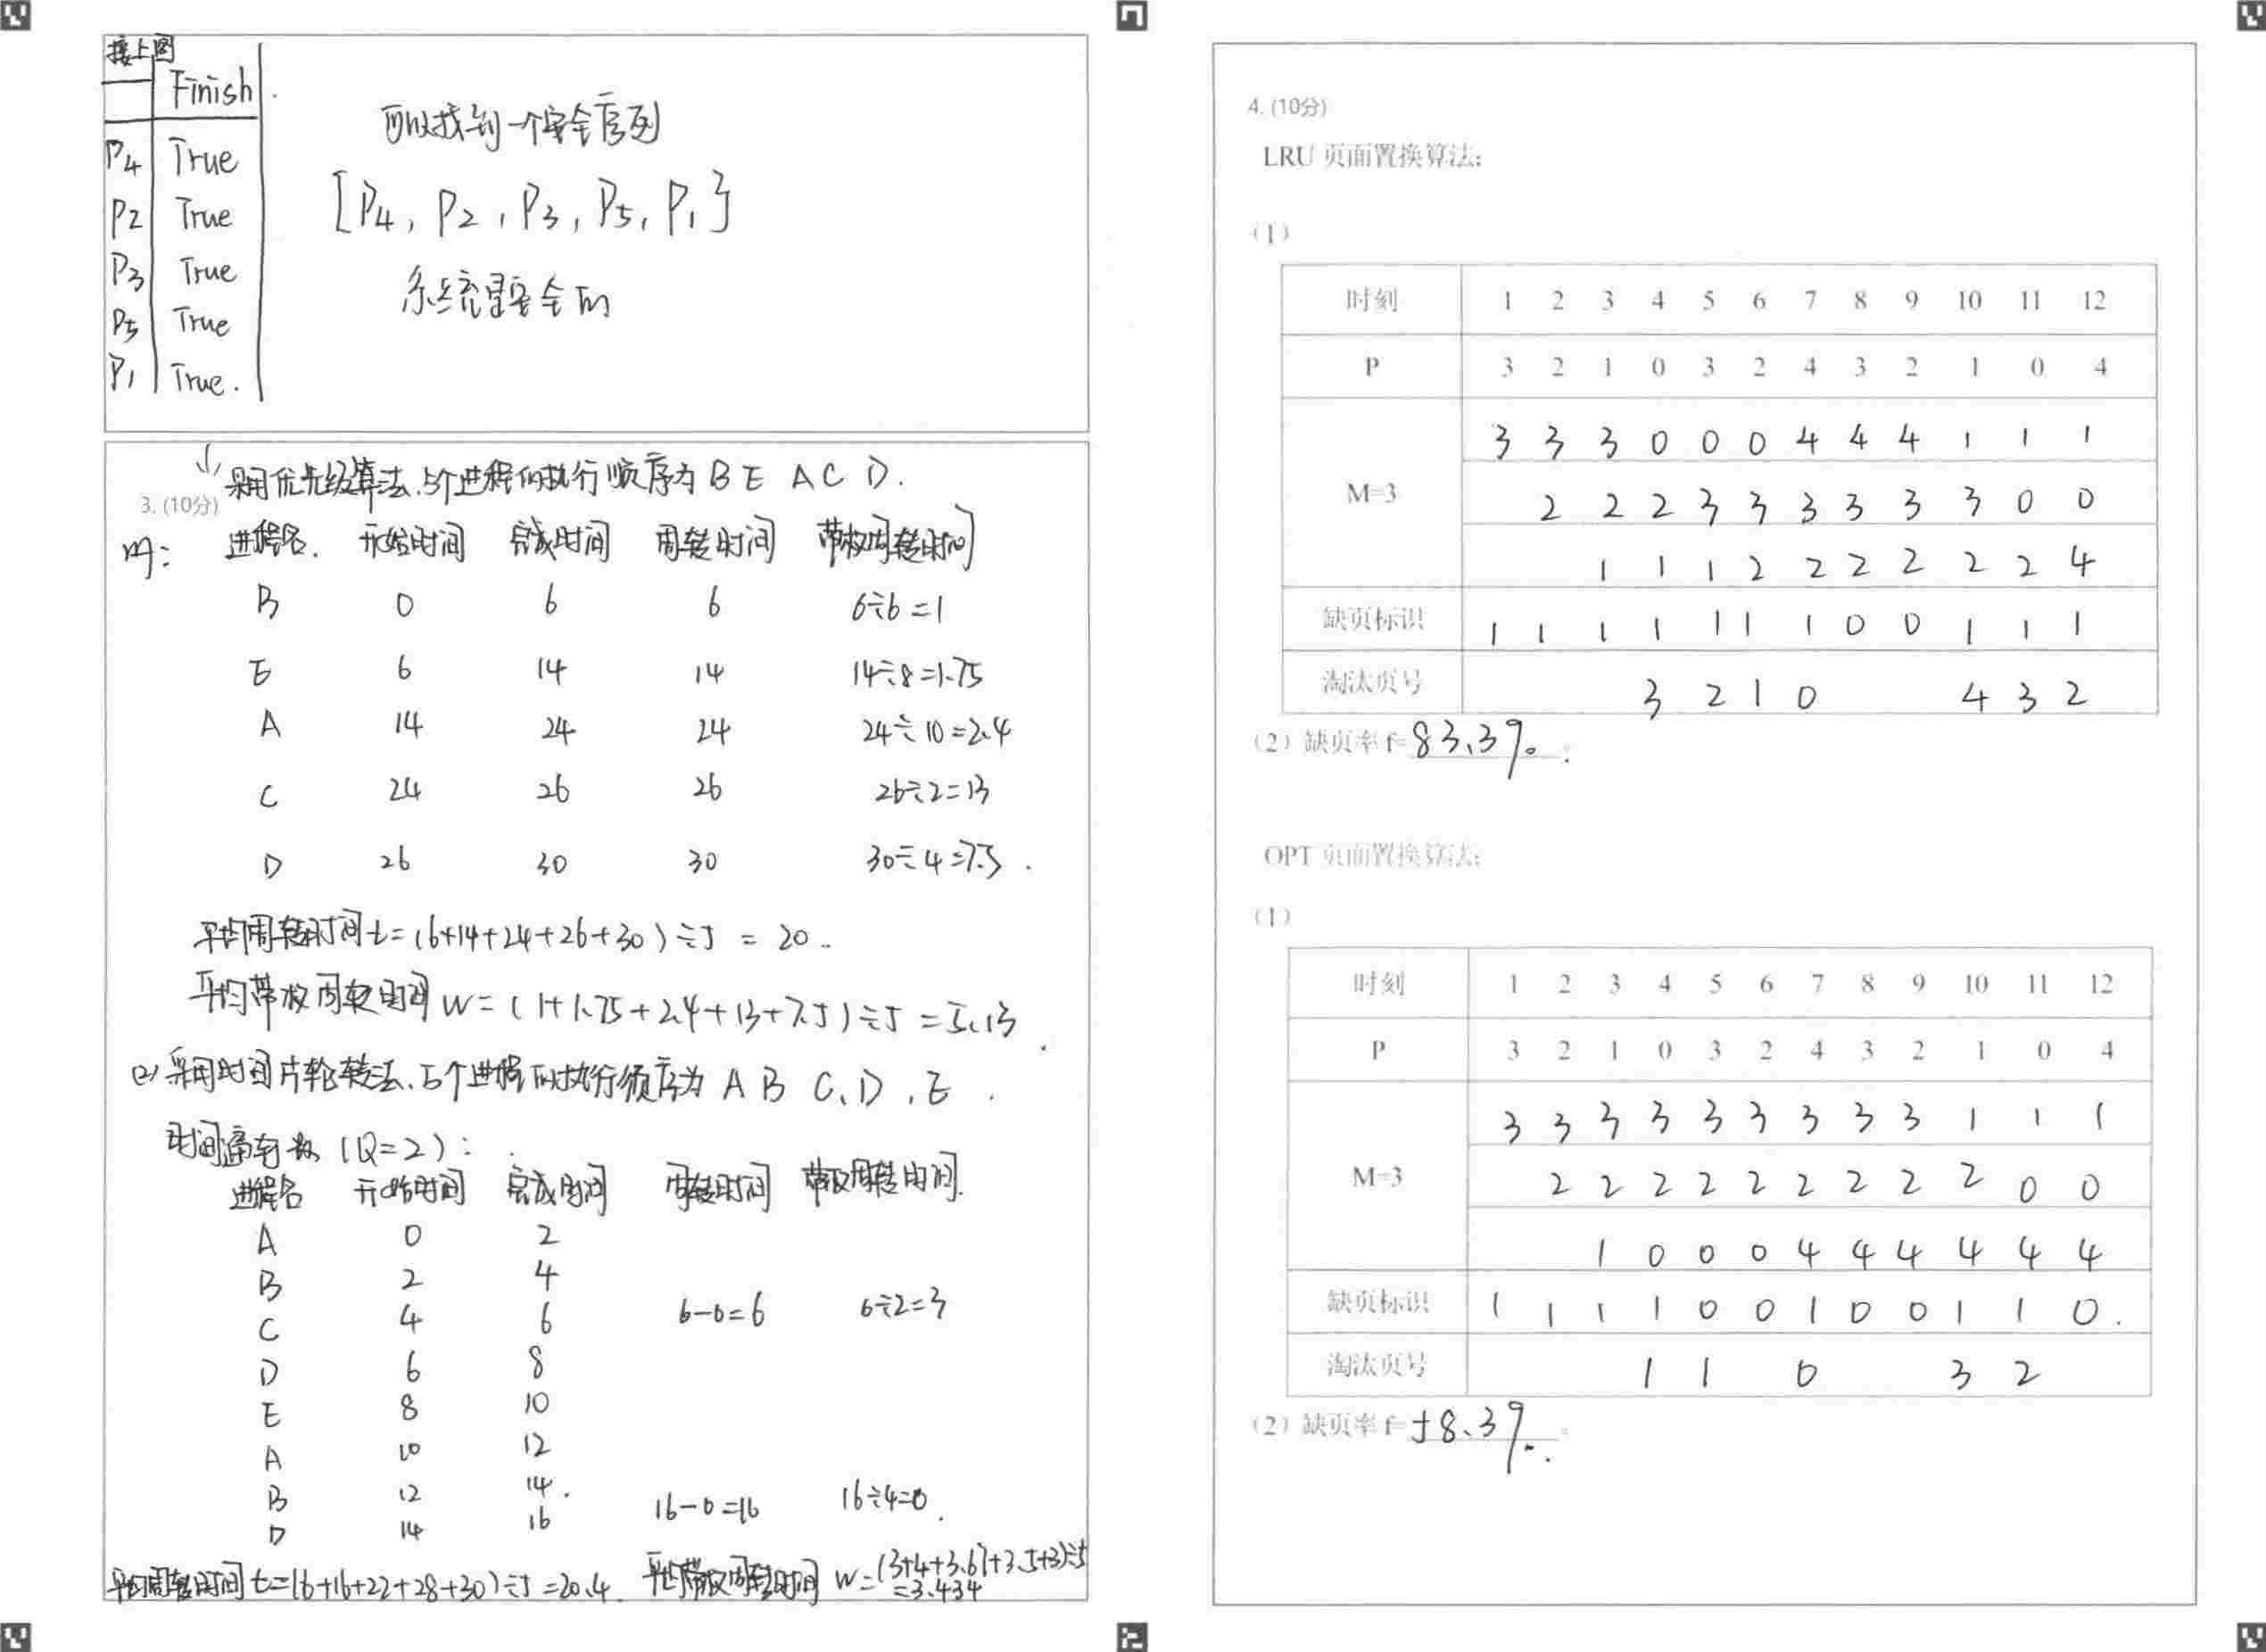 接上图
Finish
P4 True
P2 True
P3 True
P5 True
P1 True.
可以找到一个安全序列
[P4, P2, P3, P5, P1}
系统是安全的
(1) 采用优先级算法,5个进程的执行顺序为 B E A C D.
3. (10分)
进程名. 开始时间 完成时间 周转时间 带权周转时间
B 0 6 6 6÷6=1
E 6 14 14 14÷8=1.75
A 14 24 24 24÷10=2.4
C 24 26 26 26÷2=13
D 26 30 30 30÷4=7.5.
平均周转时间t=(6+14+24+26+30)÷5=20.
平均带权周转时间W=(1+1.75+2.4+13+7.5)÷5=5.13.
(2) 采用时间片轮转法,5个进程的执行顺序为 A B C、D,E.
时间 (Q=2):
进程名 开始时间 完成时间 周转时间 带权周转时间.
A 0 2
B 2 4
C 4 6 6-0=6 6÷2=3
D 6 8
E 8 10
A 10 12
B 12 14.
D 14 16 16-0=16 16÷4=0.
平均周转时间t=(6+16+22+28+30)÷5=20.4. 平均带权周转时间 W=(3+4+3.67+3.5+3)÷5
=3.434
4. (10分)
LRU 页面置换算法:
(1)
时刻 1 2 3 4 5 6 7 8 9 10 11 12
P 3 2 1 0 3 2 4 3 2 1 0 4
3 3 3 0 0 0 4 4 4 1 1 1
M=3 2 2 2 3 3 3 3 3 3 0 0
1 1 1 2 2 2 2 2 2 4
缺页标识 1 1 1 1 1 1 1 0 0 1 1 1
淘汰页号 3 2 1 0 4 3 2
(2) 缺页率 f=83.3%.
OPT 页面置换算法:
(1)
时刻 1 2 3 4 5 6 7 8 9 10 11 12
P 3 2 1 0 3 2 4 3 2 1 0 4
3 3 3 3 3 3 3 3 3 1 1 1
M=3 2 2 2 2 2 2 2 2 2 0 0
1 0 0 0 4 4 4 4 4 4
缺页标识 1 1 1 1 0 0 1 0 0 1 1 0.
淘汰页号 1 1 0 3 2
(2) 缺页率 f=58.3%.